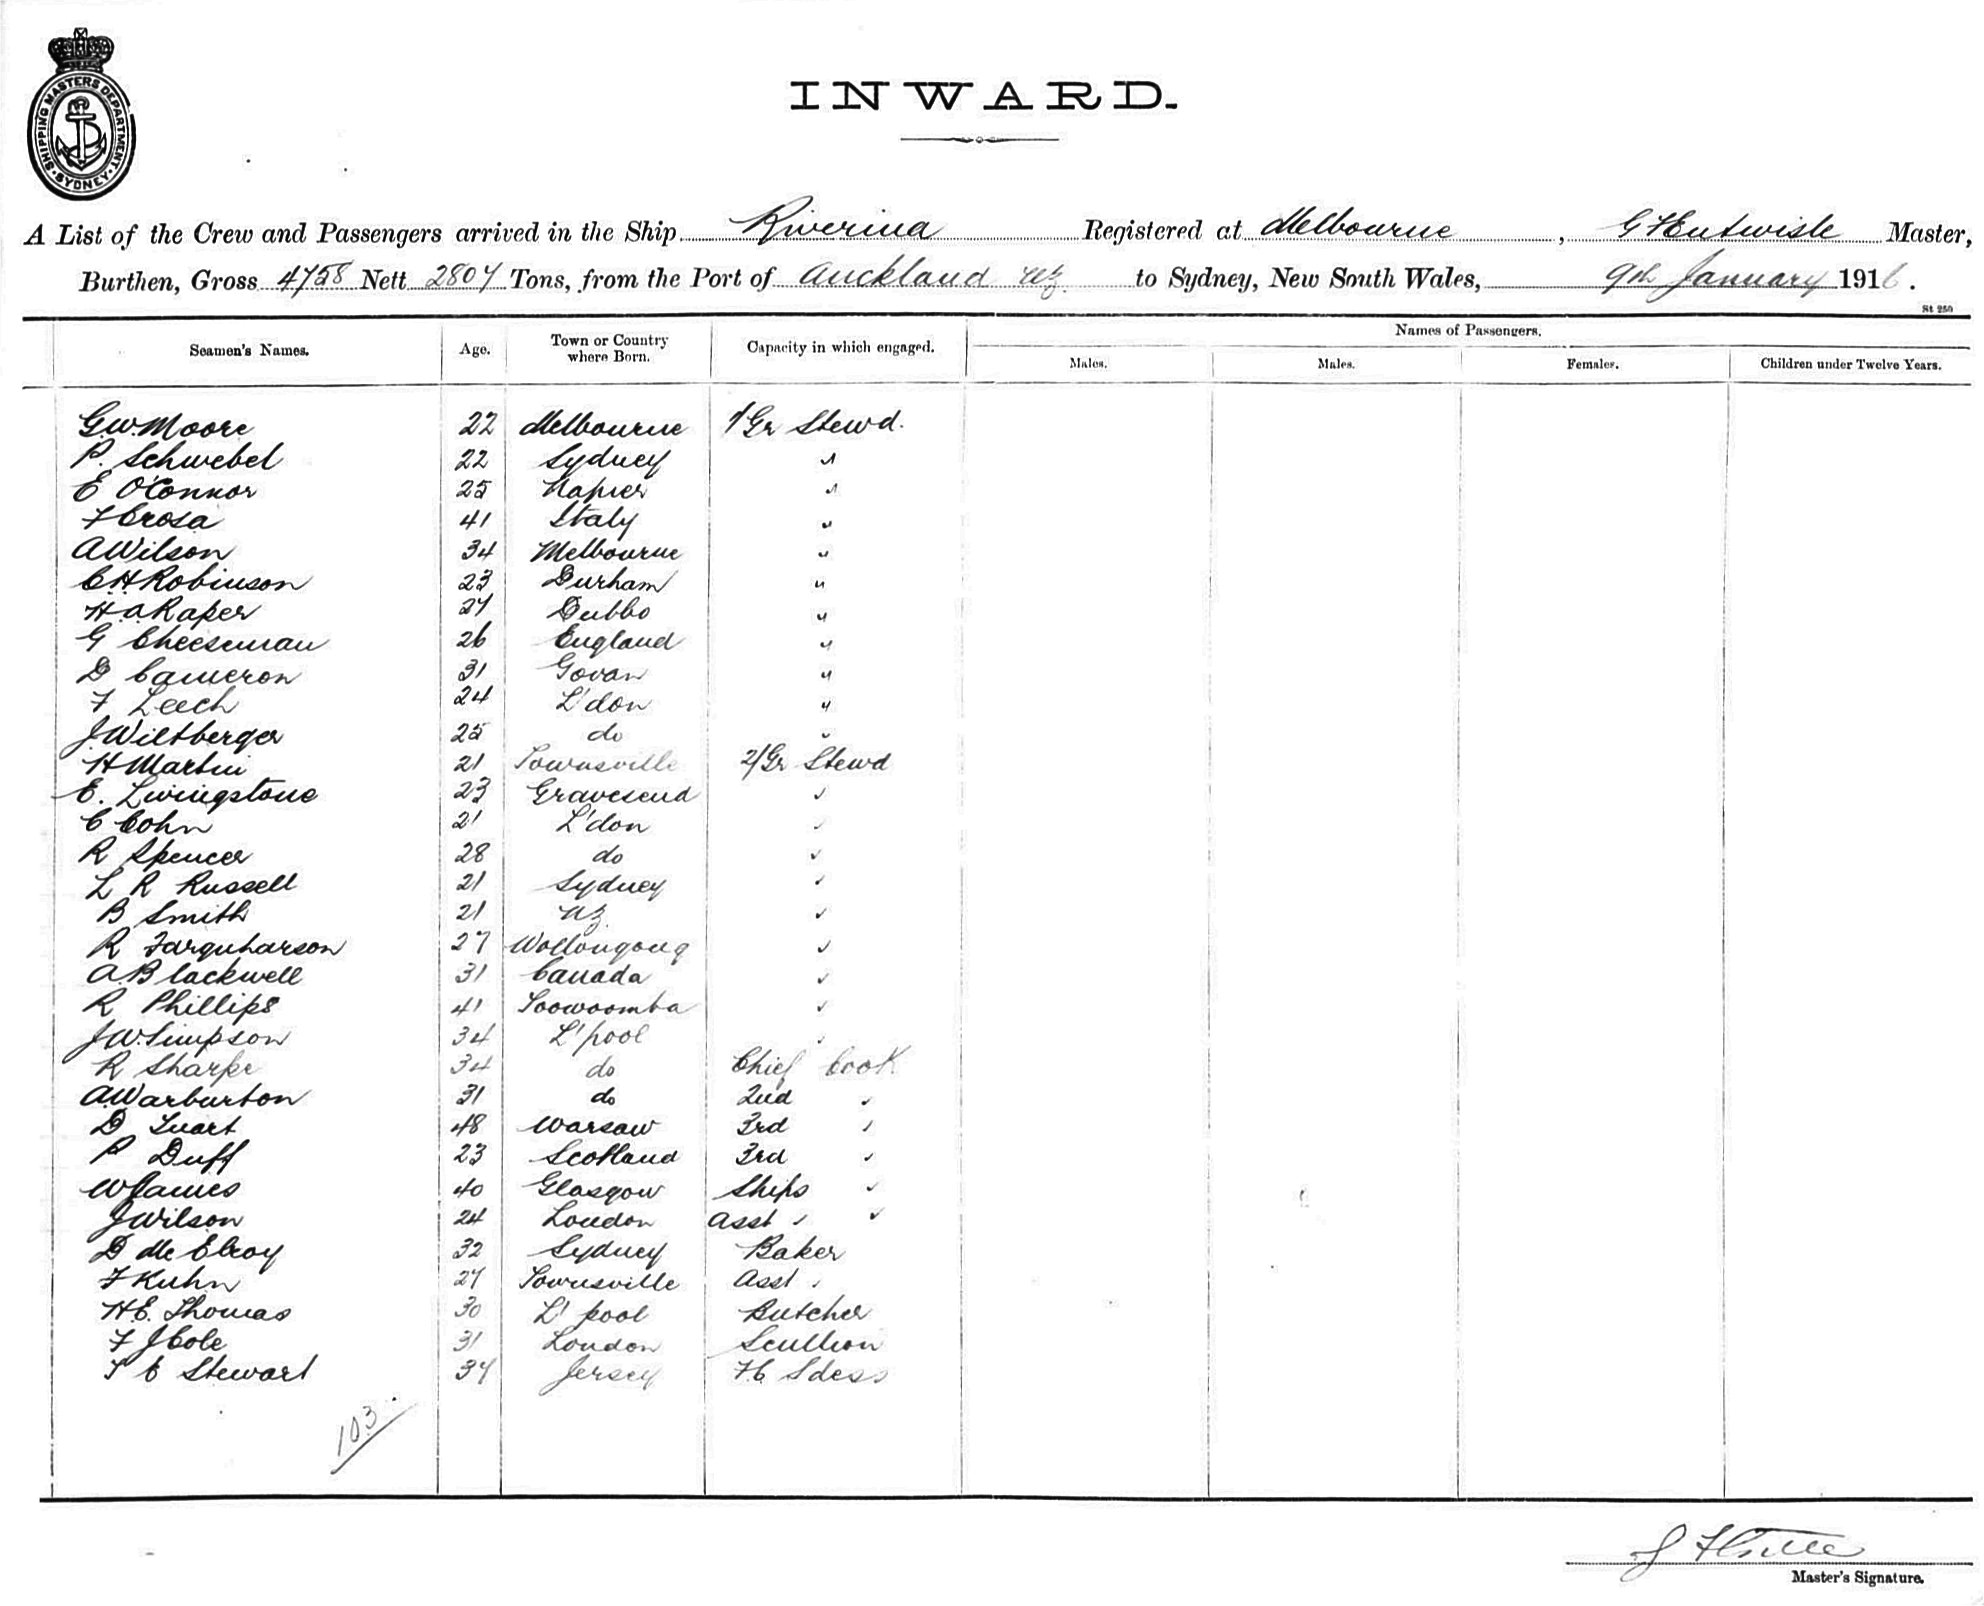 SHIPPING MASTERS DEPARTMENT
SYDNEY
INWARD.
A List of the Crew and Passengers arrived in the Ship Riverina Registered at Melbourne, G F Entwisle Master,
Burthen, Gross 4758 Nett 2807 Tons, from the Port of Auckland NZ to Sydney, New South Wales, 9th January 1916.
St 250
Seamen's Names. Age. Town or Country where Born. Capacity in which engaged. Names of Passengers.
Males. Males. Females. Children under Twelve Years.
G.W. Moore 22 Melbourne 1/Gr Stewd.
P. Schwebel 22 Sydney "
E O'Connor 25 Napier "
F Crosa 41 Italy "
A Wilson 34 Melbourne "
C H Robinson 23 Durham "
H A Raper 27 Dubbo "
G Cheeseman 26 England "
D Cameron 31 Govan "
F Leech 24 L'don "
J Wiltberger 25 do "
H Martin 21 Townsville 2/Gr Stewd
E. Livingstone 23 Gravesend "
C Cohn 21 L'don "
R Spencer 28 do "
L R Russell 21 Sydney "
B Smith 21 NZ "
R Farquharson 27 Wollongong "
A. Blackwell 31 Canada "
R Phillips 41 Toowoomba "
J W. Simpson 34 L'pool "
R Sharpe 34 do Chief Cook
A Warburton 31 do 2nd "
D 48 Warsaw 3rd "
P Duff 23 Scotland 3rd "
W James 40 Glasgow Ships "
J Wilson 24 London Asst " "
D McElroy 32 Sydney Baker
F Kuhn 27 Townsville Asst "
H.E. Thomas 30 L'pool Butcher
F J Cole 31 London Scullion
T E Stewart 37 Jersey F.C. Sdess
103
Master's Signature.